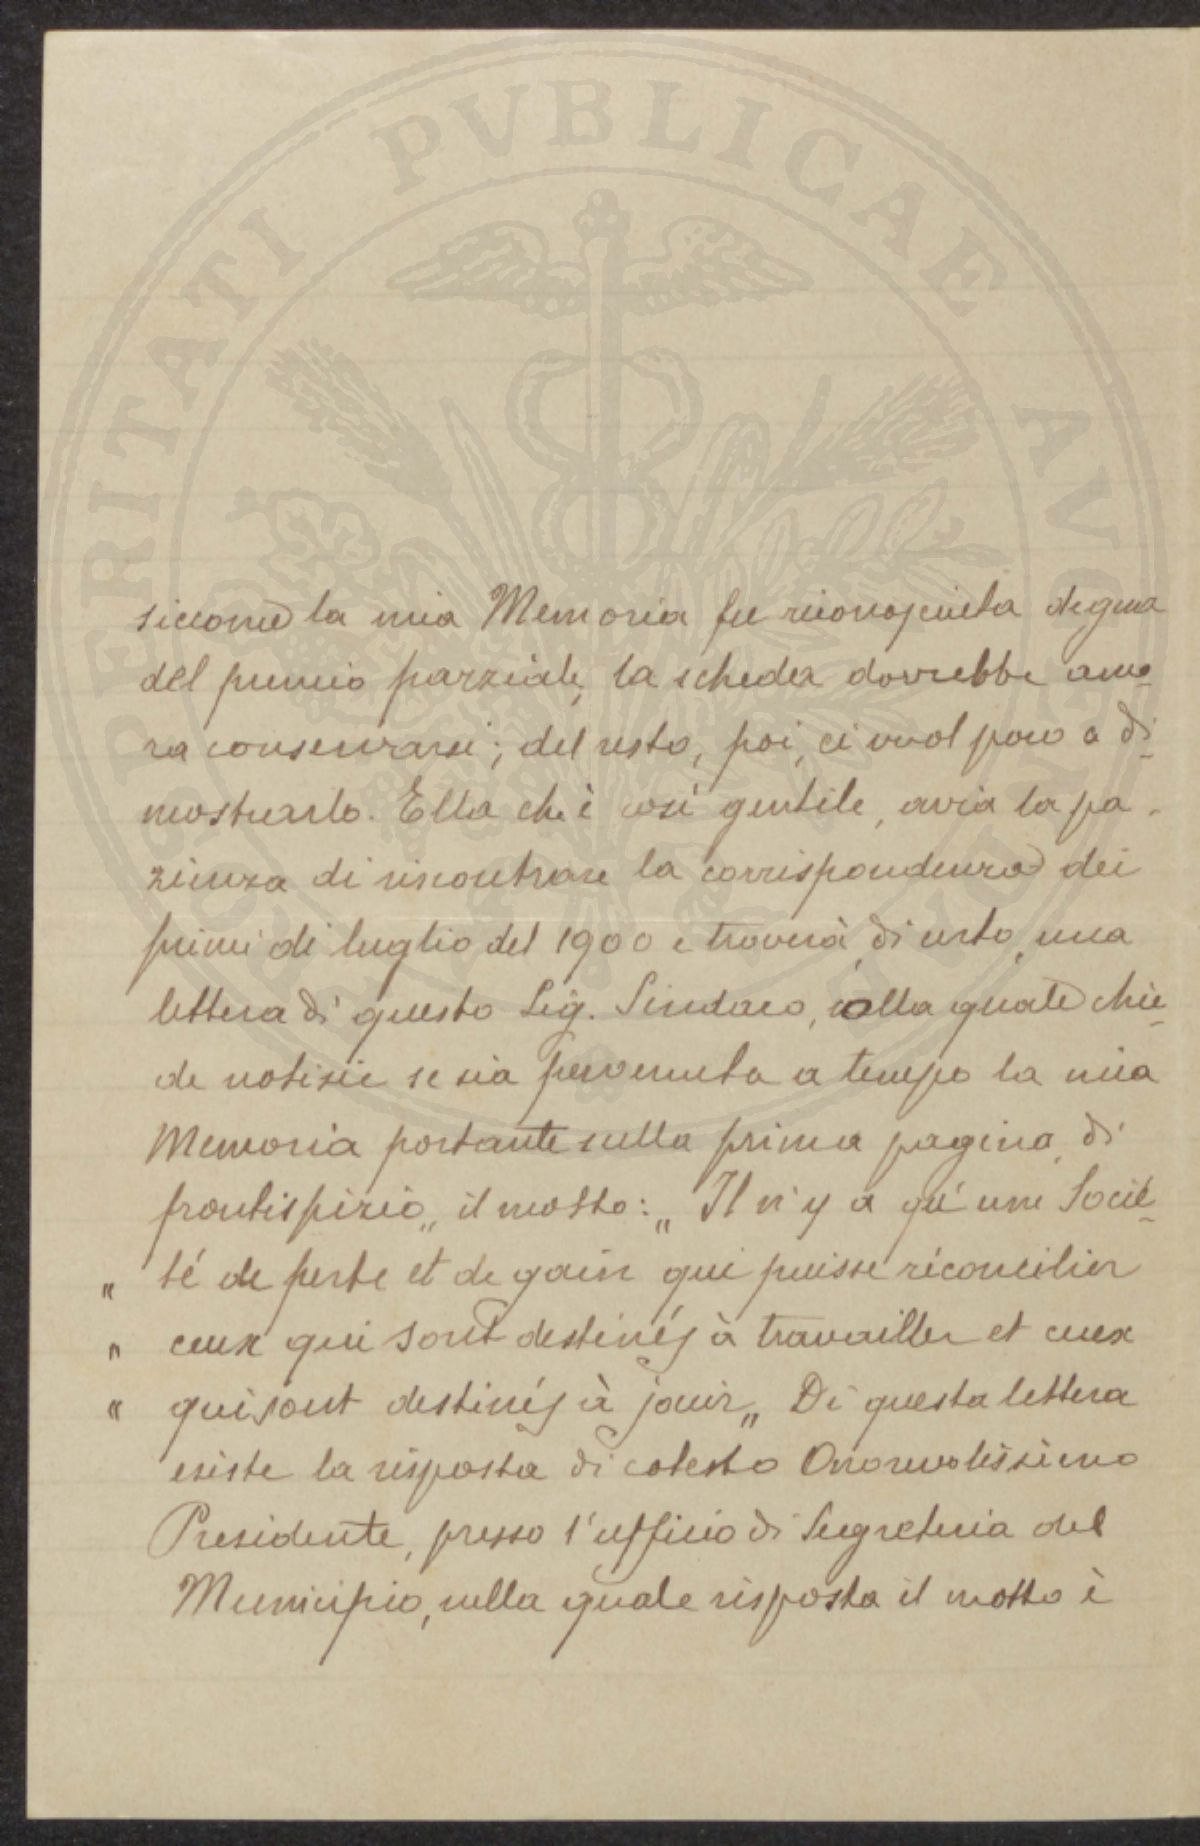 PROSPERITATI PVBLICAE AVGENDAE
siccome la mia Memoria fu riconosciuta degna
del premio parziale, la scheda dovrebbe anco-
ra conservarsi; del resto, poi, ci vuol poco a di-
mostrarlo. Ella che è così gentile, avrà la pa-
zienza di riscontrare la corrispondenza dei
primi di luglio del 1900 e troverà, di certo, una
lettera di questo Sig. Sindaco, colla quale chie-
de notizie se sia pervenuta a tempo la mia
Memoria portante sulla prima pagina, di
frontispizio, il motto: „ Il n'y a qu'une Socié-
„ té de perte et de gain qui puisse réconcilier
„ ceux qui sont destinés à travailler et ceux
„ qui sont destinés à jouir „ Di questa lettera
esiste la risposta di cotesto Onorevolissimo
Presidente, presso l'ufficio di Segreteria del
Municipio, nella quale risposta il motto è